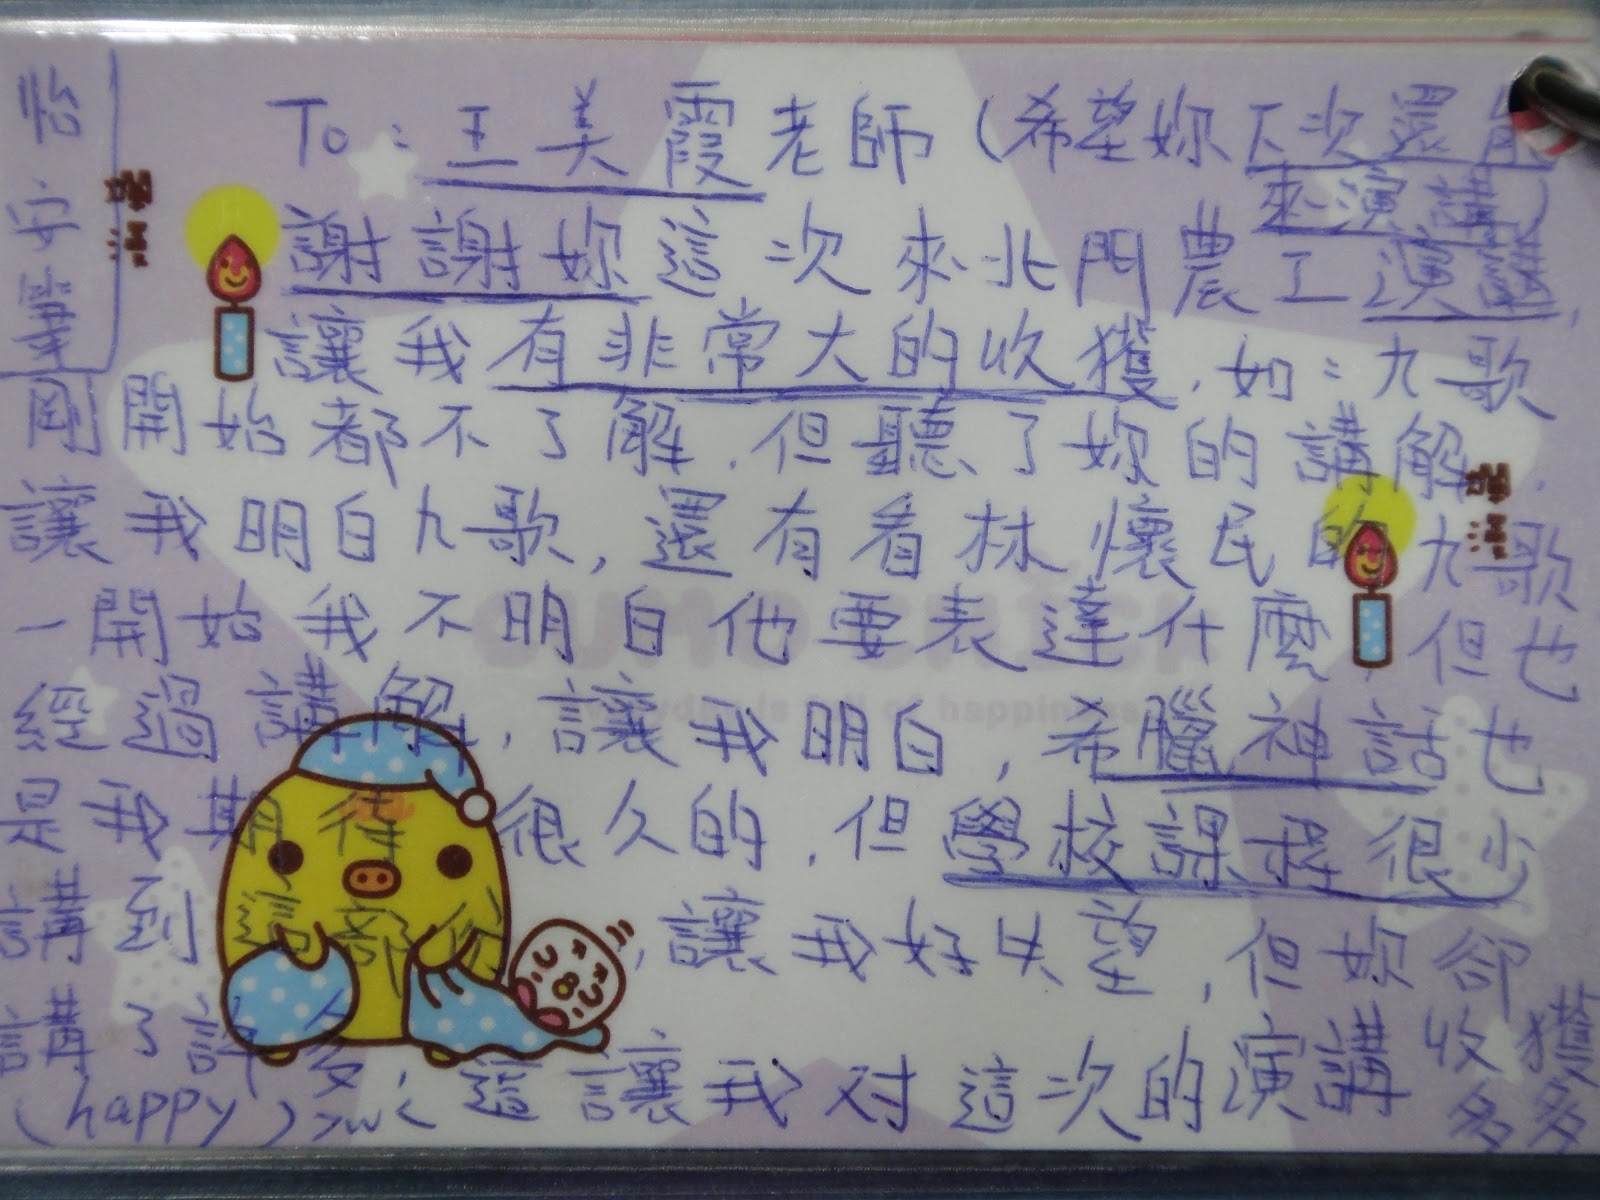 To：王美霞老師（希望妳下次還能
來演講）
謝謝妳這次來北門農工演講，
讓我有非常大的收獲，如：九歌
剛開始都不了解，但聽了妳的講解，
讓我明白九歌，還有看林懷民的九歌
一開始我不明白他要表達什麼，但也
經過講解，讓我明白，希臘神話也
是我期待很久的，但學校課程很少
講到這部份，讓我好失望，但妳卻
講了許多(happy)>w<這讓我对這次的演講收獲多多
怡安筆